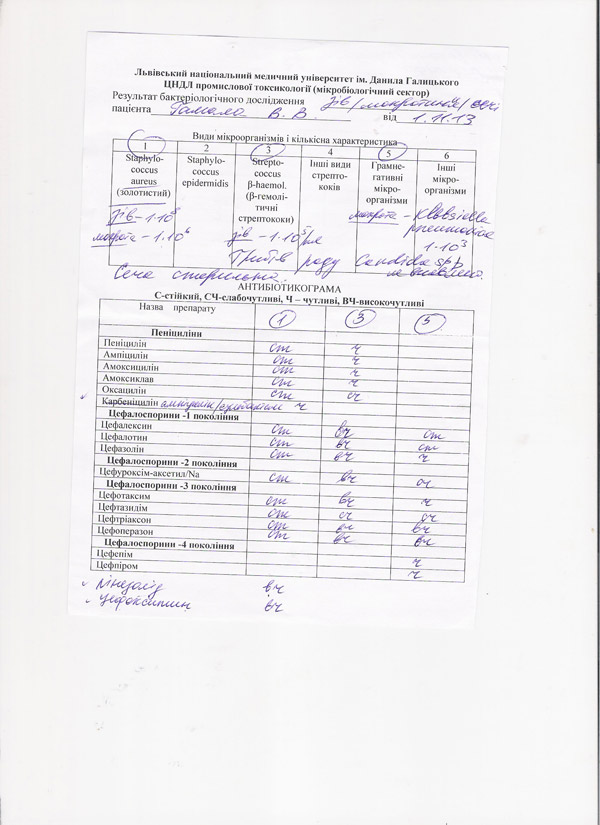 Львівський національний медичний університет ім. Данила Галицького
ЦНДЛ промислової токсикології (мікробіологічний сектор)
Результат бактеріологічного дослідження зів / мокротиння / сечі
пацієнта В. В. від 1.11.13
Види мікроорганізмів і кількісна характеристика
1 2 3 4 5 6
Staphylo-coccus aureus (золотистий)
Staphylo-coccus epidermidis
Strepto-coccus β-haemol. (β-гемолітичні стрептококи)
Інші види стрепто-коків
Грамне-гативні мікро-організми
Інші мікро-організми
зів – 1·10
мокрота – 1·10⁶
зів – 1·10⁵/мл
мокрота – Klebsiella pneumoniae 1·10³
Грибів роду Candida spp не виявлено.
Сеча стерильна.
АНТИБІОТИКОГРАМА
С-стійкий, СЧ-слабочутливі, Ч – чутливі, ВЧ-високочутливі
Назва препарату 1 3 5
Пеніциліни
Пеніцилін ст ч
Ампіцилін ст ч
Амоксицилін ст ч
Амоксиклав ст ч
Оксацилін ст сч
Карбеніцилін ампіцилін/сульбактам ч
Цефалоспорини -1 покоління
Цефалексин ст вч ст
Цефалотин ст вч ст
Цефазолін ст вч ч
Цефалоспорини -2 покоління
Цефуроксім-аксетил/Na ст вч сч
Цефалоспорини -3 покоління
Цефотаксим ст вч ч
Цефтазидім ст сч сч
Цефтріаксон ст вч
Цефоперазон ст вч вч
Цефалоспорини -4 покоління
Цефепім ч
Цефпіром ч
Лінезолід вч
Цефокситин вч